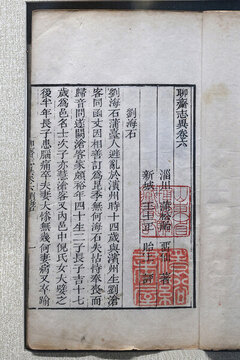 聊齋志異卷六
淄川 蒲松齡 留仙 著
新城 王士正 貽上 評
劉海石
劉海石蒲臺人避亂於濱州時十四歲與濱州生劉滄
客同函丈因相善訂為昆季無何海石失怙恃奉喪而
歸音問遂闕滄客家頗裕年四十生二子長子吉十七
歲為邑名士次子亦慧滄客又內邑中倪氏女大嬖之
後半年長子患腦痛卒夫妻大慘無幾何妻病又卒踰